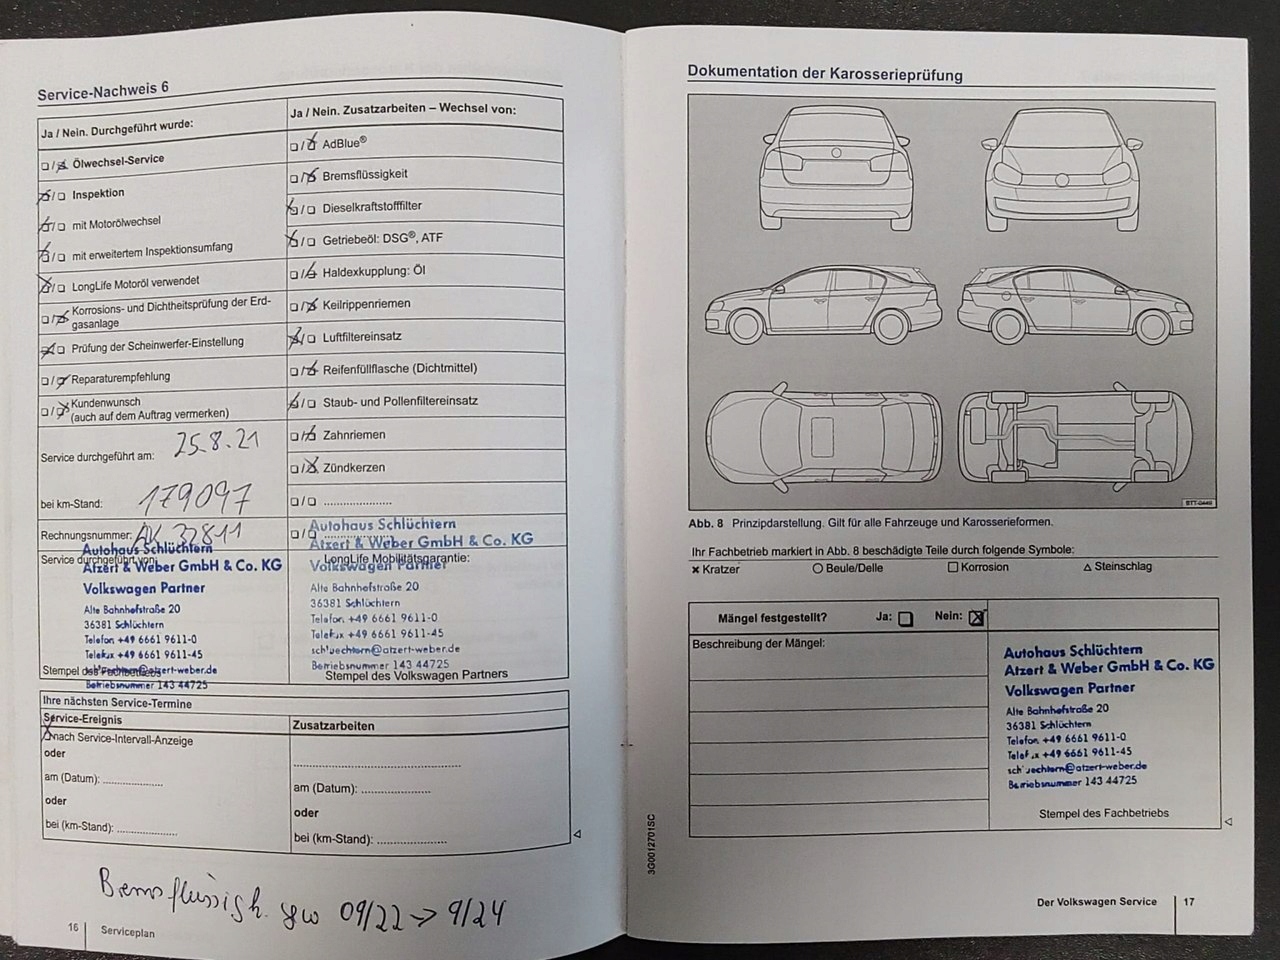 Service-Nachweis 6
Ja / Nein. Durchgeführt wurde:
Ölwechsel-Service
Inspektion
mit Motorölwechsel
mit erweitertem Inspektionsumfang
LongLife Motoröl verwendet
Korrosions- und Dichtheitsprüfung der Erd-
gasanlage
Prüfung der Scheinwerfer-Einstellung
Reparaturempfehlung
Kundenwunsch
(auch auf dem Auftrag vermerken)
Service durchgeführt am: 25.8.21
bei km-Stand: 179097
Rechnungsnummer: AK 32811
Service durchgeführt von:
Autohaus Schlüchtern
Atzert & Weber GmbH & Co. KG
Volkswagen Partner
Alte Bahnhofstraße 20
36381 Schlüchtern
Telefon +49 6661 9611-0
Telefax +49 6661 9611-45
schluechtern@atzert-weber.de
Stempel des Fachbetriebs
Betriebsnummer 143 44725
Ja / Nein. Zusatzarbeiten – Wechsel von:
AdBlue®
Bremsflüssigkeit
Dieselkraftstofffilter
Getriebeöl: DSG®, ATF
Haldexkupplung: Öl
Keilrippenriemen
Luftfiltereinsatz
Reifenfüllflasche (Dichtmittel)
Staub- und Pollenfiltereinsatz
Zahnriemen
Zündkerzen
Autohaus Schlüchtern
Atzert & Weber GmbH & Co. KG
LongLife Mobilitätsgarantie:
Volkswagen Partner
Alte Bahnhofstraße 20
36381 Schlüchtern
Telefon +49 6661 9611-0
Telefax +49 6661 9611-45
schluechtern@atzert-weber.de
Betriebsnummer 143 44725
Stempel des Volkswagen Partners
Ihre nächsten Service-Termine
Service-Ereignis
nach Service-Intervall-Anzeige
oder
am (Datum):
oder
bei (km-Stand):
Zusatzarbeiten
am (Datum):
oder
bei (km-Stand):
Bremsflüssigk. gw 09/22 -> 9/24
16 Serviceplan
Dokumentation der Karosserieprüfung
BTT-0449
Abb. 8 Prinzipdarstellung. Gilt für alle Fahrzeuge und Karosserieformen.
Ihr Fachbetrieb markiert in Abb. 8 beschädigte Teile durch folgende Symbole:
× Kratzer ○ Beule/Delle □ Korrosion △ Steinschlag
Mängel festgestellt? Ja: Nein:
Beschreibung der Mängel:
Autohaus Schlüchtern
Atzert & Weber GmbH & Co. KG
Volkswagen Partner
Alte Bahnhofstraße 20
36381 Schlüchtern
Telefon +49 6661 9611-0
Telefax +49 6661 9611-45
schluechtern@atzert-weber.de
Betriebsnummer 143 44725
Stempel des Fachbetriebs
3G0012701SC
Der Volkswagen Service 17